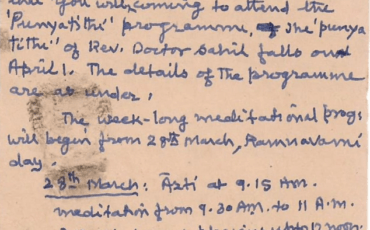 you will coming to attend the
'Punyatithi' programme, The 'punya
tithi' of Rev. Doctor Sahil falls on
April 1. The details of the programme
are as under,
The week-long meditational prog
will begin from 28th March, Ramnavami
day.
28th March: Arti at 9.15 AM.
meditation from 9.30 AM. to 11 A.M.
upto 12 noon.